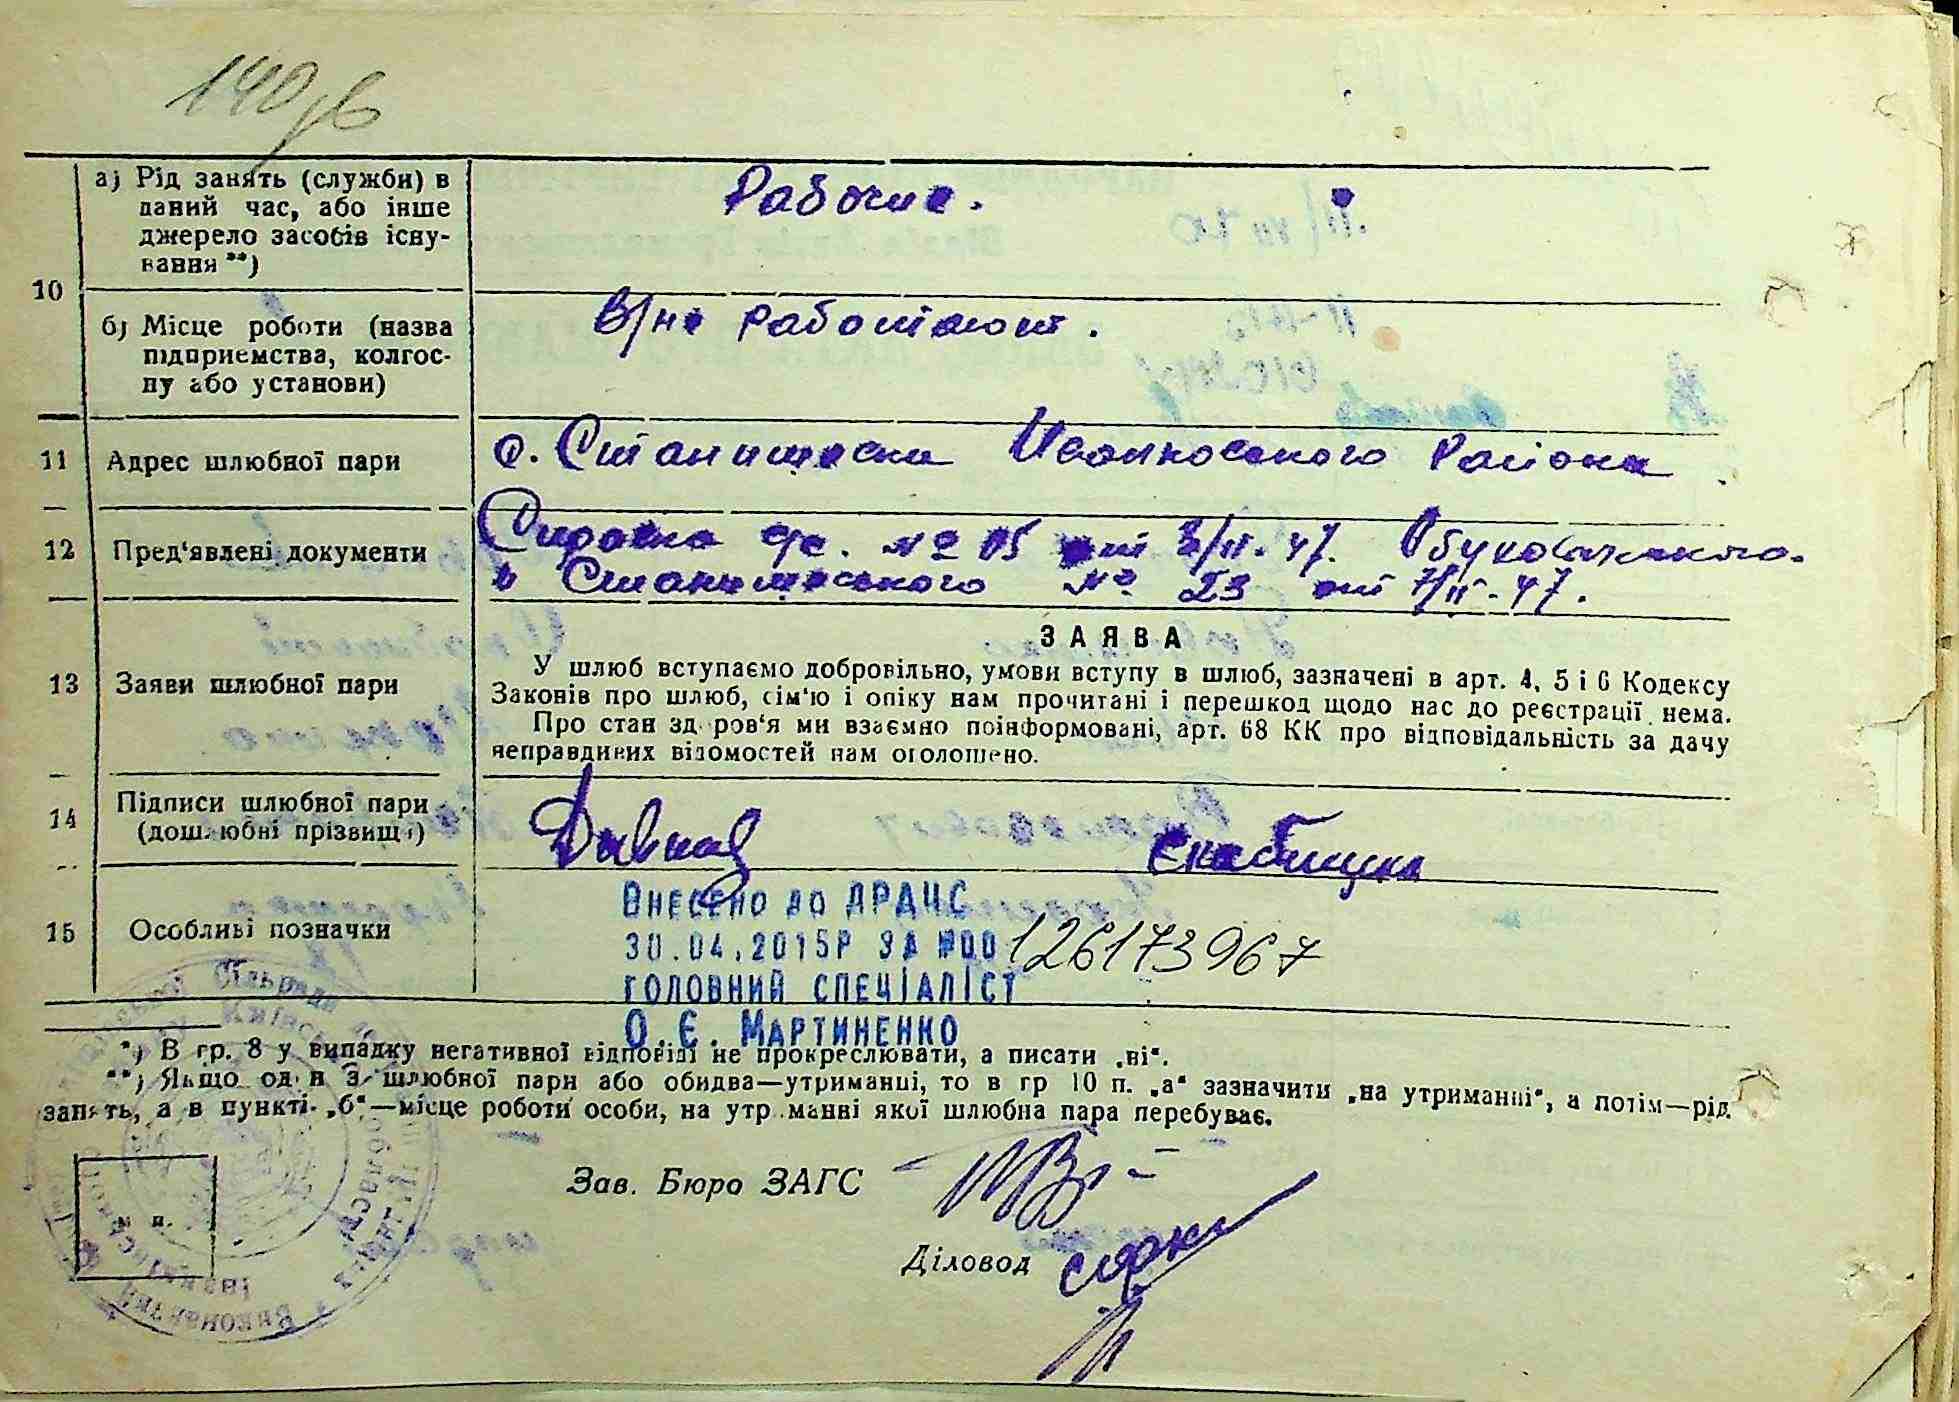 140 зв
10
а) Рід занять (служби) в
даний час, або інше
джерело засобів існу-
вання **)
Рабочие.
б) Місце роботи (назва
підприємства, колгос-
пу або установи)
в/не работают.
11 Адрес шлюбної пари
с. Станишовка Иванковского Района
12 Пред'явлені документи
Справка с/с. № 85 от 3/II-47.
и Станишовского № 23 от 7/II-47.
13 Заяви шлюбної пари
ЗАЯВА
У шлюб вступаємо добровільно, умови вступу в шлюб, зазначені в арт. 4, 5 і 6 Кодексу
Законів про шлюб, сім'ю і опіку нам прочитані і перешкод щодо нас до реєстрації нема.
Про стан здоров'я ми взаємно поінформовані, арт. 68 КК про відповідальність за дачу
неправдивих відомостей нам оголошено.
14 Підписи шлюбної пари
(дошлюбні прізвища)
15 Особливі позначки
Внесено до ДРАЦС
30.04.2015р за №00126173967
головний спеціаліст
О.Є. Мартиненко
*) В гр. 8 у випадку негативної відповіді не прокреслювати, а писати „ні“.
**) Якщо один з шлюбної пари або обидва—утриманці, то в гр 10 п. „а“ зазначити „на утриманні“, а потім—рід
занять, а в пункті „б“—місце роботи особи, на утриманні якої шлюбна пара перебуває.
Зав. Бюро ЗАГС
м п.
Діловод